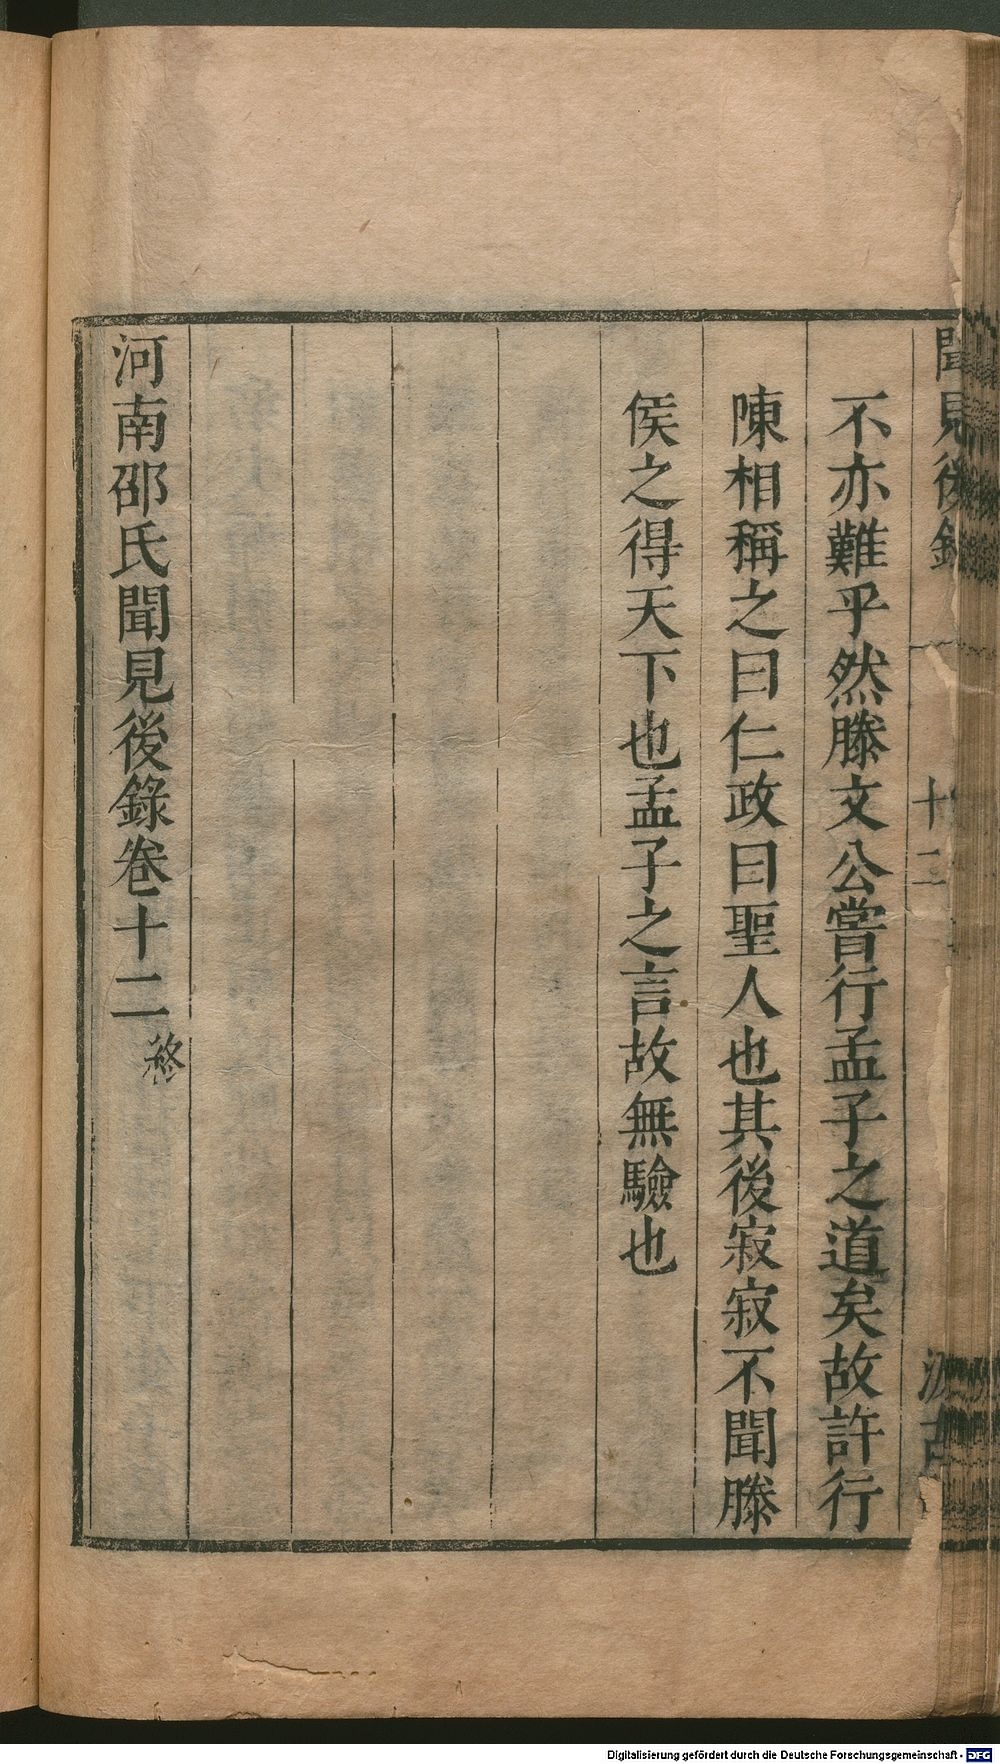 聞見後錄
十二
汲古
不亦難乎然滕文公嘗行孟子之道矣故許行
陳相稱之曰仁政曰聖人也其後寂寂不聞滕
侯之得天下也孟子之言故無驗也
河南邵氏聞見後錄卷十二 終
Digitalisierung gefördert durch die Deutsche Forschungsgemeinschaft - DFG